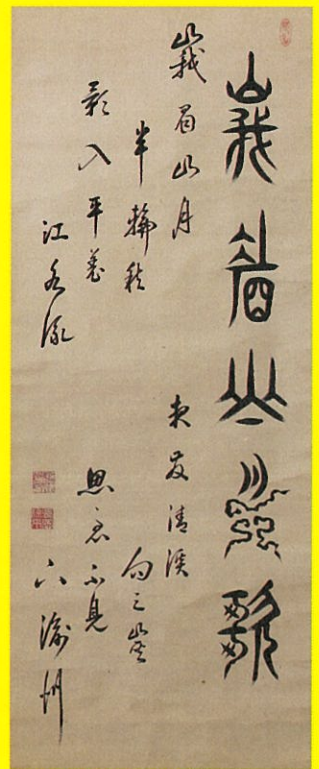 峩眉山月歌
峩眉山月
半輪秋
影入平羌
江水流
夜發清溪
向三峽
思君不見
下渝州